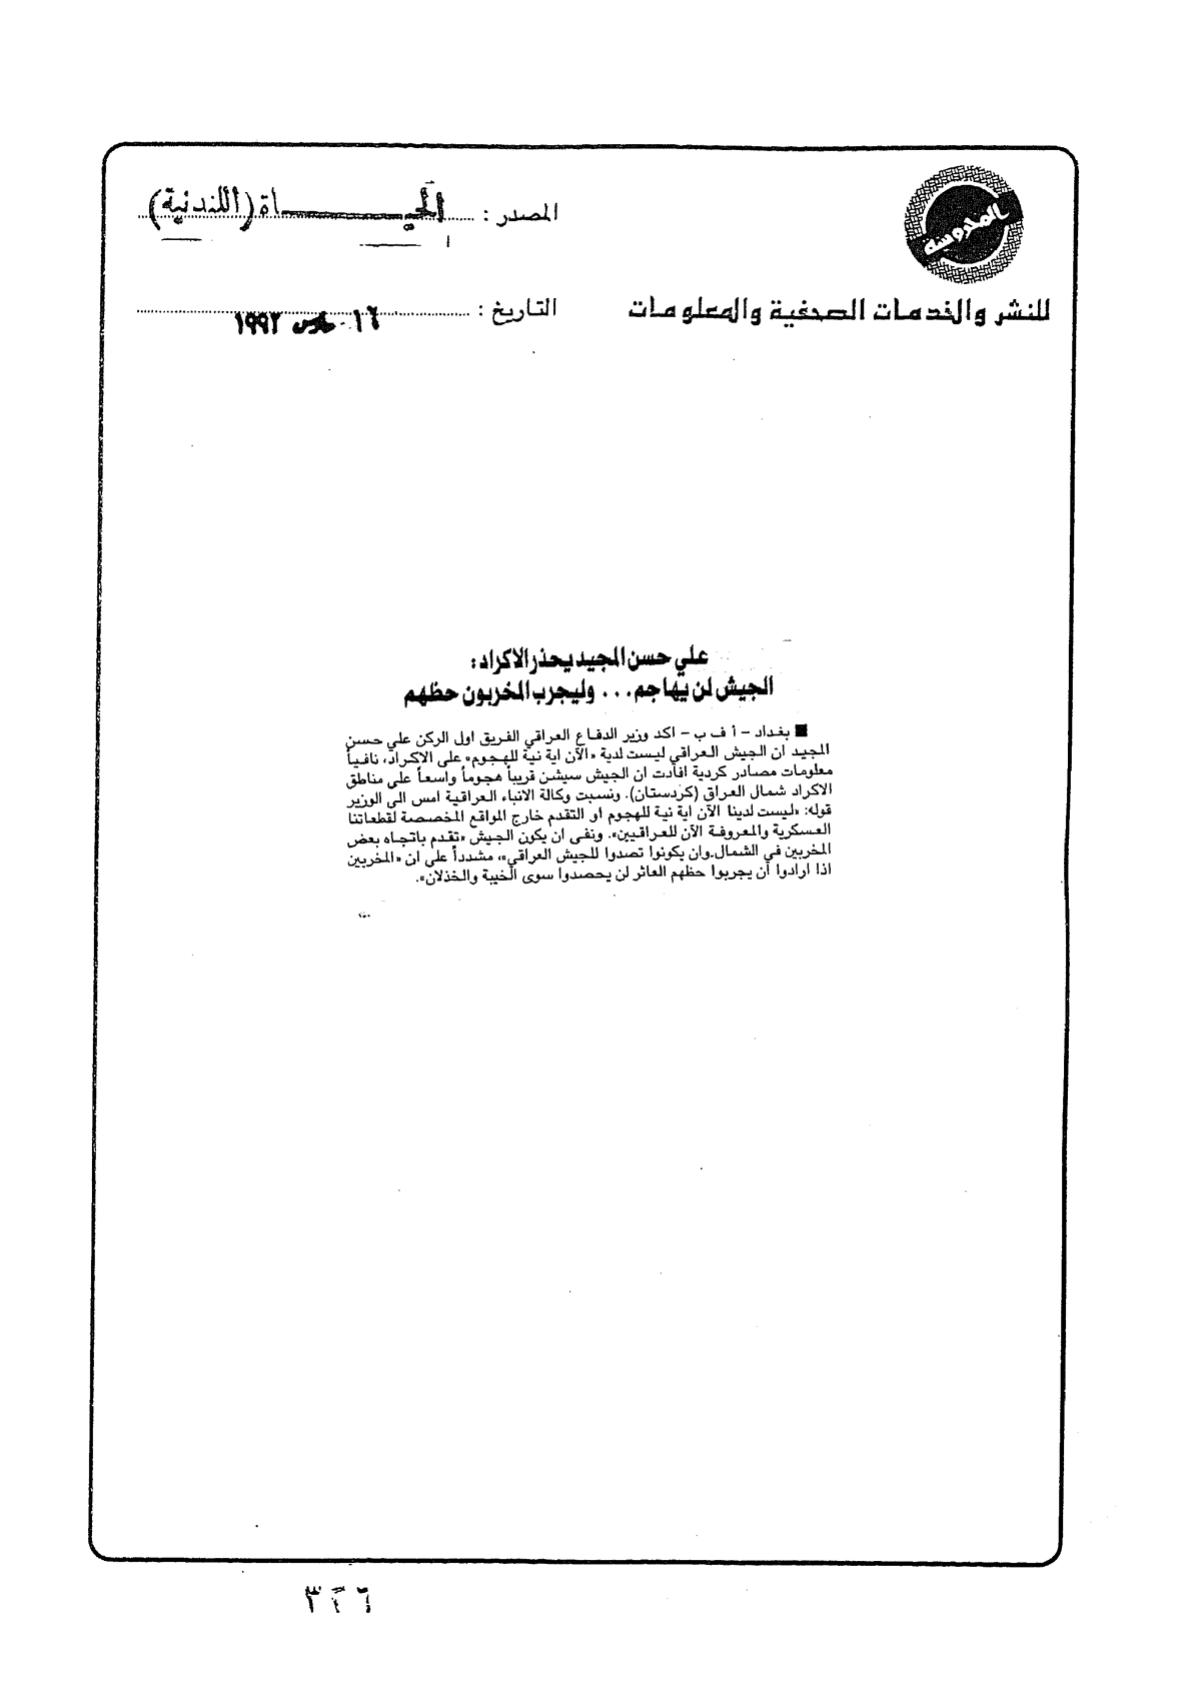 المحروسة
المصدر : الحيـــــــاة (اللندنية)
للنشر والخدمات الصحفية والمعلومات
التاريخ : ١٦ مارس ١٩٩٢
علي حسن المجيد يحذر الاكراد:
الجيش لن يهاجم... وليجرب المخربون حظهم
■ بغداد - أ ف ب - اكد وزير الدفاع العراقي الفريق اول الركن علي حسن
المجيد ان الجيش العراقي ليست لدية «الآن اية نية للهجوم» على الاكراد، نافياً
معلومات مصادر كردية افادت ان الجيش سيشن قريباً هجوماً واسعاً على مناطق
الاكراد شمال العراق (كردستان). ونسبت وكالة الانباء العراقية امس الى الوزير
قوله: «ليست لدينا الآن اية نية للهجوم او التقدم خارج المواقع المخصصة لقطعاتنا
العسكرية والمعروفة الآن للعراقيين». ونفى ان يكون الجيش «تقدم باتجاه بعض
المخربين في الشمال.وان يكونوا تصدوا للجيش العراقي»، مشدداً على ان «المخربين
اذا ارادوا ان يجربوا حظهم العاثر لن يحصدوا سوى الخيبة والخذلان».